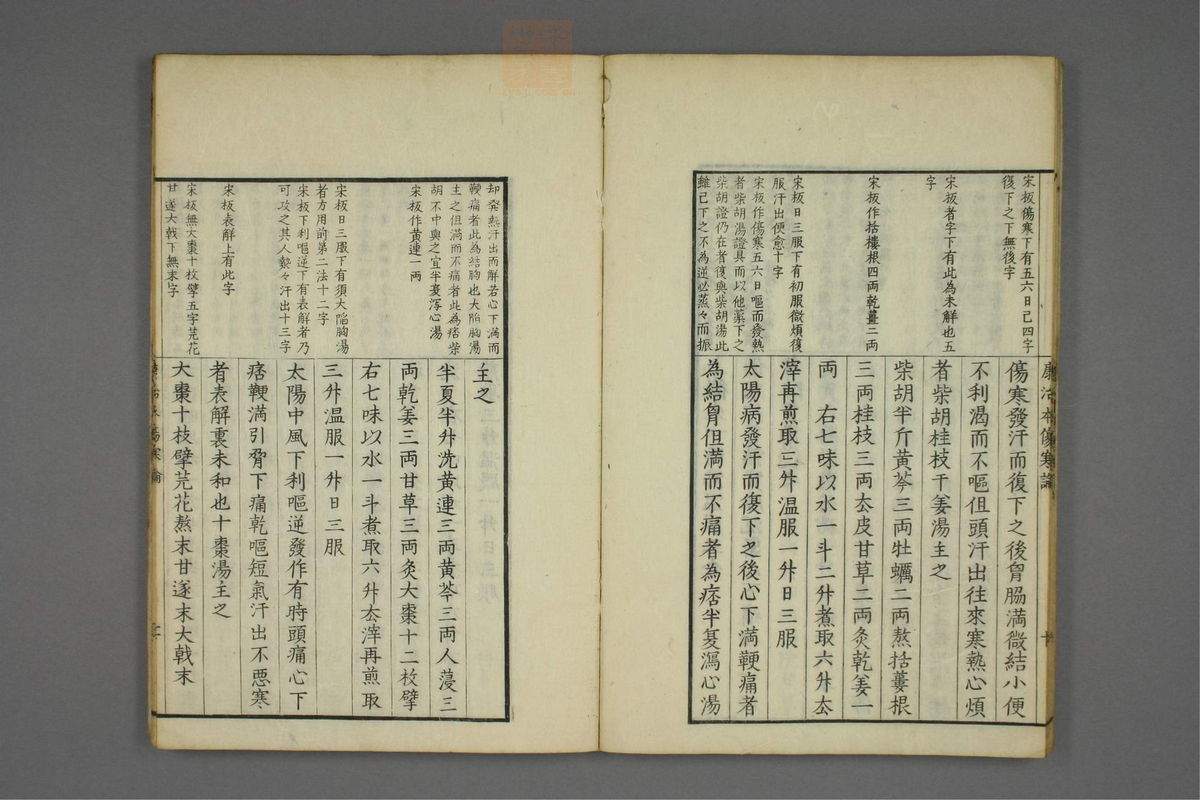 宋板傷寒下有五六日已四字
復下之下無後字
宋板者字下有此為未解也五
字
宋板作括樓根四両乾薑二両
宋板日三服下有初服微煩復
服汗出便愈十字
宋板作傷寒五六日嘔而發熱
者柴胡湯證具而以他薬下之
柴胡證仍在者復與柴胡湯此
雖已下之不為逆必蒸々而振
康治本傷寒論
傷寒發汗而復下之後胷脇満微結小便
不利渇而不嘔但頭汗出往來寒熱心煩
者柴胡桂枝干姜湯主之
柴胡半斤黄芩三両牡蠣二両熬括蔞根
三両桂枝三両厺皮甘草二両灸乾姜一
両　右七味以水一斗二升煮取六升厺
滓再煎取三升温服一升日三服
太陽病發汗而復下之後心下満鞕痛者
為結胷但満而不痛者為痞半夏瀉心湯
却発熱汗出而解若心下満而
鞕痛者此為結胸也大陥胸湯
主之但満而不痛者此為痞柴
胡不中與之宜半夏瀉心湯
宋板作黄連一両
宋板日三服下有須大陥胸湯
者方用前第二法十二字
宋板下利嘔逆下有表解者乃
可攻之其人漐々汗出十三字
宋板表解上有此字
宋板無大棗十枚擘五字芫花
甘遂大戟下無末字
主之
半夏半升洗黄連三両黄芩三両人蓡三
両乾姜三両甘草三両灸大棗十二枚擘
右七味以水一斗煮取六升厺滓再煎取
三升温服一升日三服
太陽中風下利嘔逆發作有時頭痛心下
痞鞕満引脅下痛乾嘔短氣汗出不悪寒
者表解裏未和也十棗湯主之
大棗十枝擘芫花熬末甘遂末大戟末